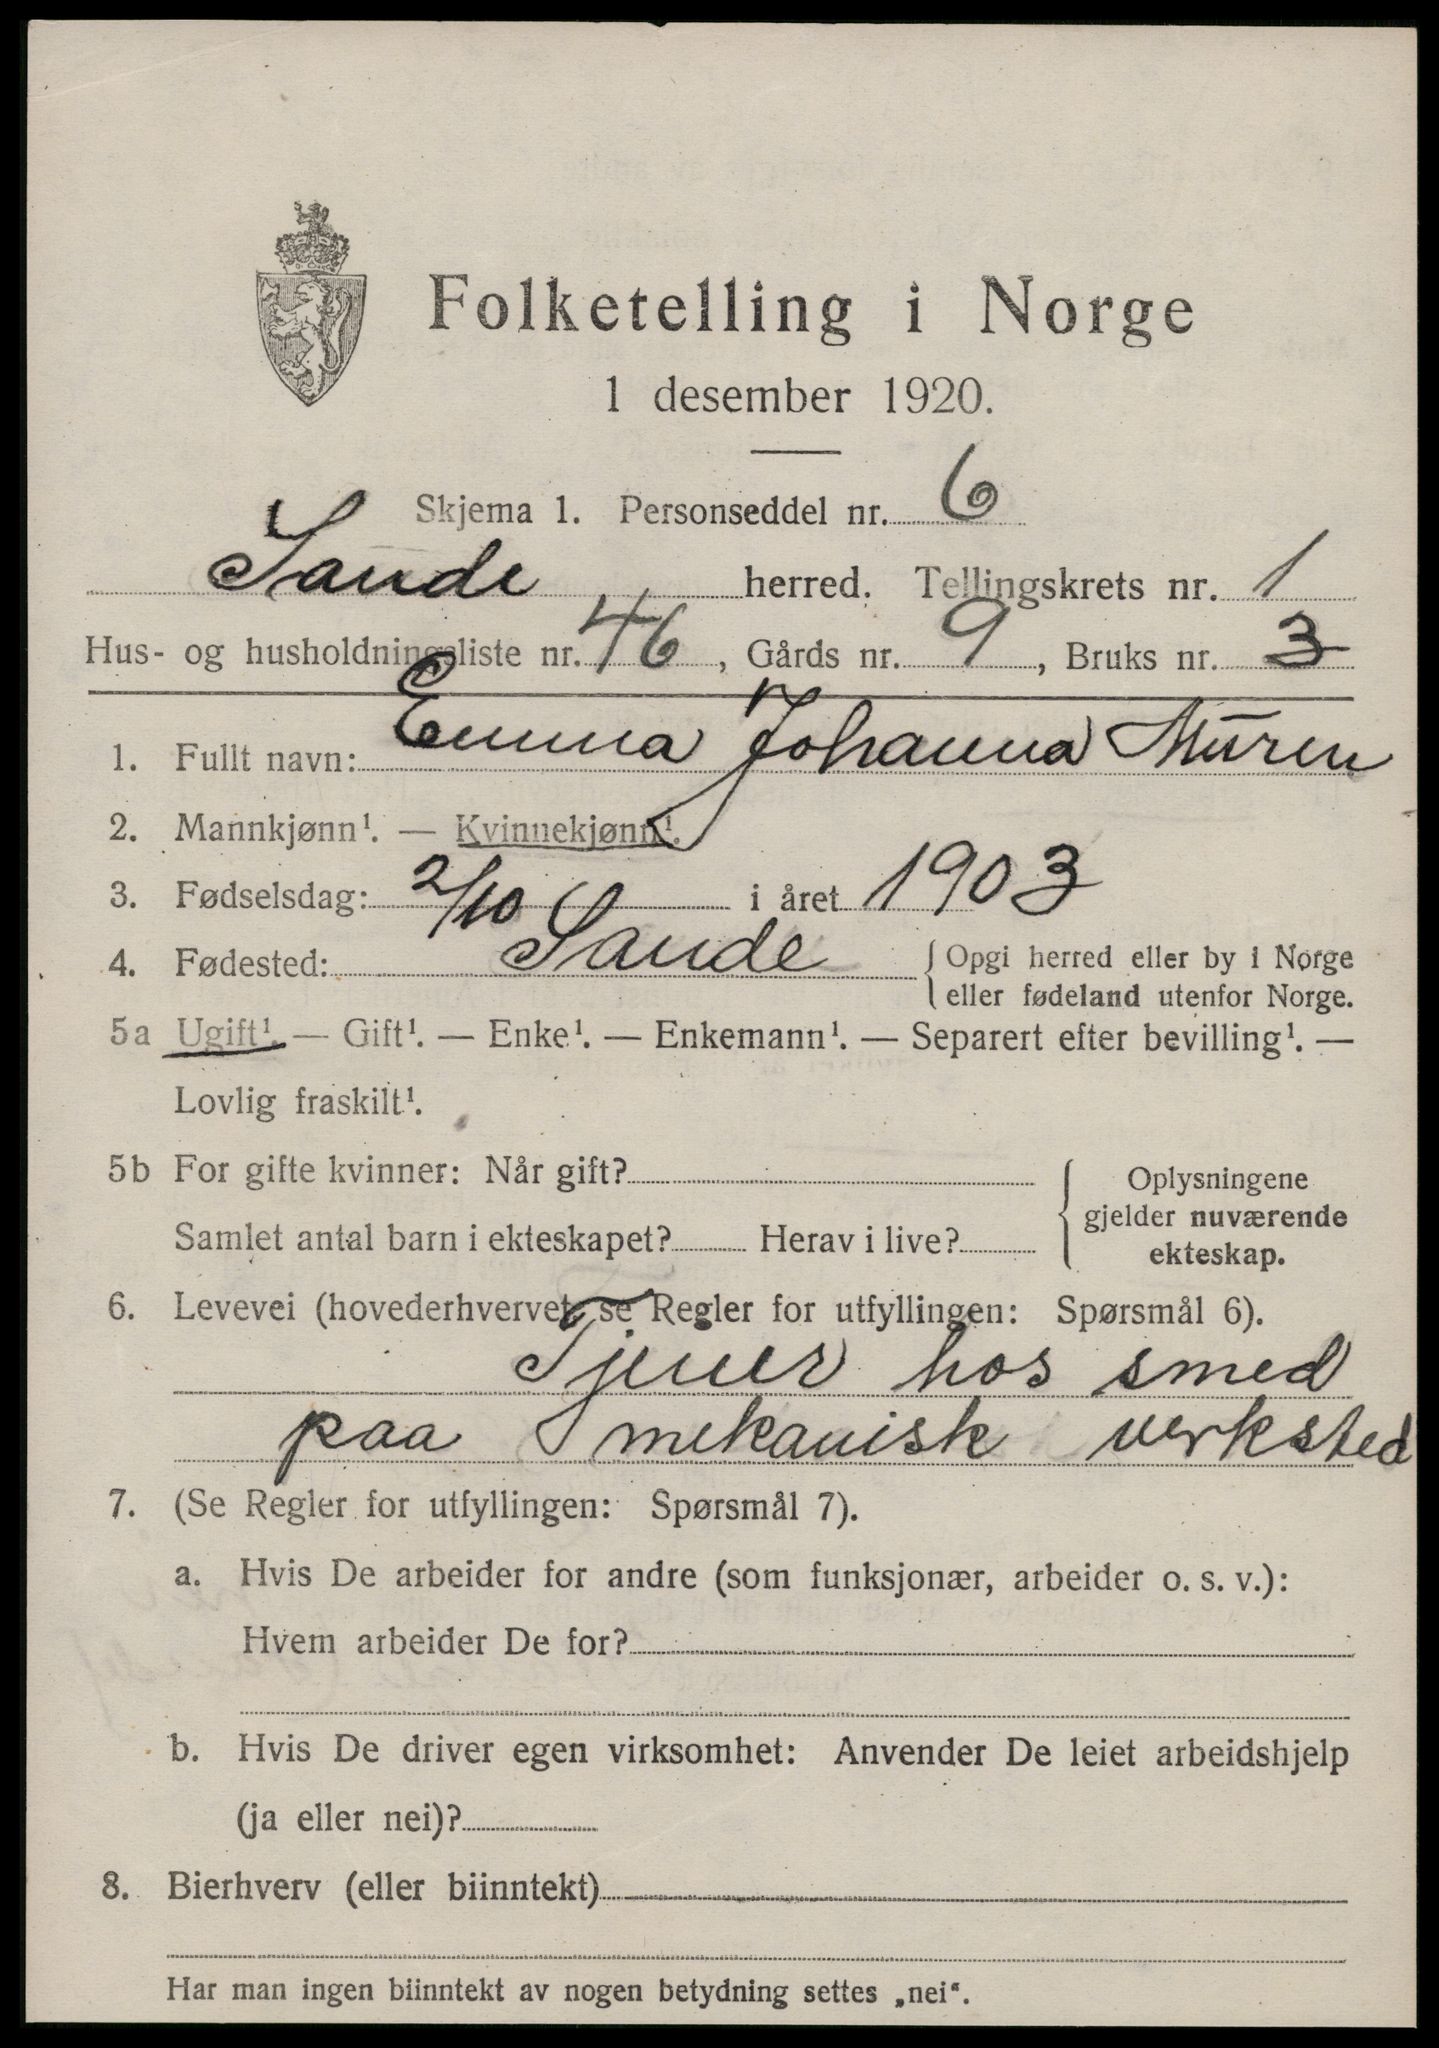 Folketelling i Norge
1 desember 1920.
Skjema 1. Personseddel nr. 6
Sande herred. Tellingskrets nr. 1
Hus- og husholdningsliste nr. 46, Gårds nr. 9, Bruks nr. 3
1. Fullt navn: Emma Johanna Muren
2. Mannkjønn¹. — Kvinnekjønn¹.
3. Fødselsdag: 2/10 i året 1903
4. Fødested: Sande { Opgi herred eller by i Norge
eller fødeland utenfor Norge.
5a Ugift¹. — Gift¹. — Enke¹. — Enkemann¹. — Separert efter bevilling¹. —
Lovlig fraskilt¹.
5b For gifte kvinner: Når gift? { Oplysningene
gjelder nuværende
Samlet antal barn i ekteskapet? Herav i live?
ekteskap.
6. Levevei (hovederhvervet, se Regler for utfyllingen: Spørsmål 6).
Tjener hos smed
paa mekanisk verksted
7. (Se Regler for utfyllingen: Spørsmål 7).
a. Hvis De arbeider for andre (som funksjonær, arbeider o. s. v.):
Hvem arbeider De for?
b. Hvis De driver egen virksomhet: Anvender De leiet arbeidshjelp
(ja eller nei)?
8. Bierhverv (eller biinntekt)
Har man ingen biinntekt av nogen betydning settes „nei“.